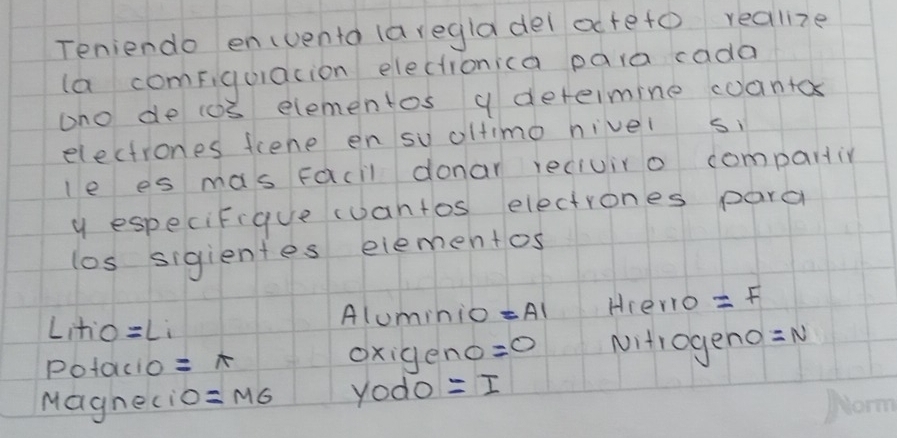 Teniendo en cuenta la regla del octeto realize
la comfiguracion electronica para cada
uno de los elementos y determine cuantos
electrones tiene en su ultimo nivel si
le es mas facil donar recivir o compartir
y especifique cuantos electrones para
los sigientes elementos
Litio = Li Aluminio = Al Hierro = F
Potacio = K oxigeno = O Nitrogeno = N
Magnecio = MG yodo = I
Norm